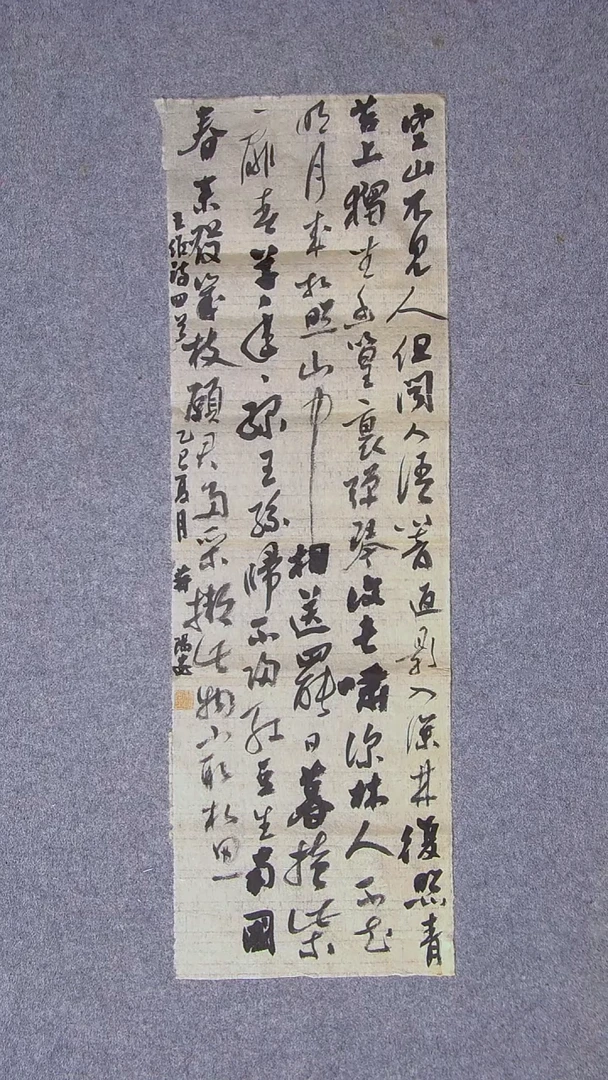 空山不見人但闻人语響返影入深林復照青
苔上獨坐幽篁裏彈琴復長嘯深林人不知
明月来相照山中相送罷日暮掩柴
扉春草年年綠王孫歸不歸紅豆生南國
春来發幾枝願君多采撷此物最相思
王维诗四首 乙巳夏月